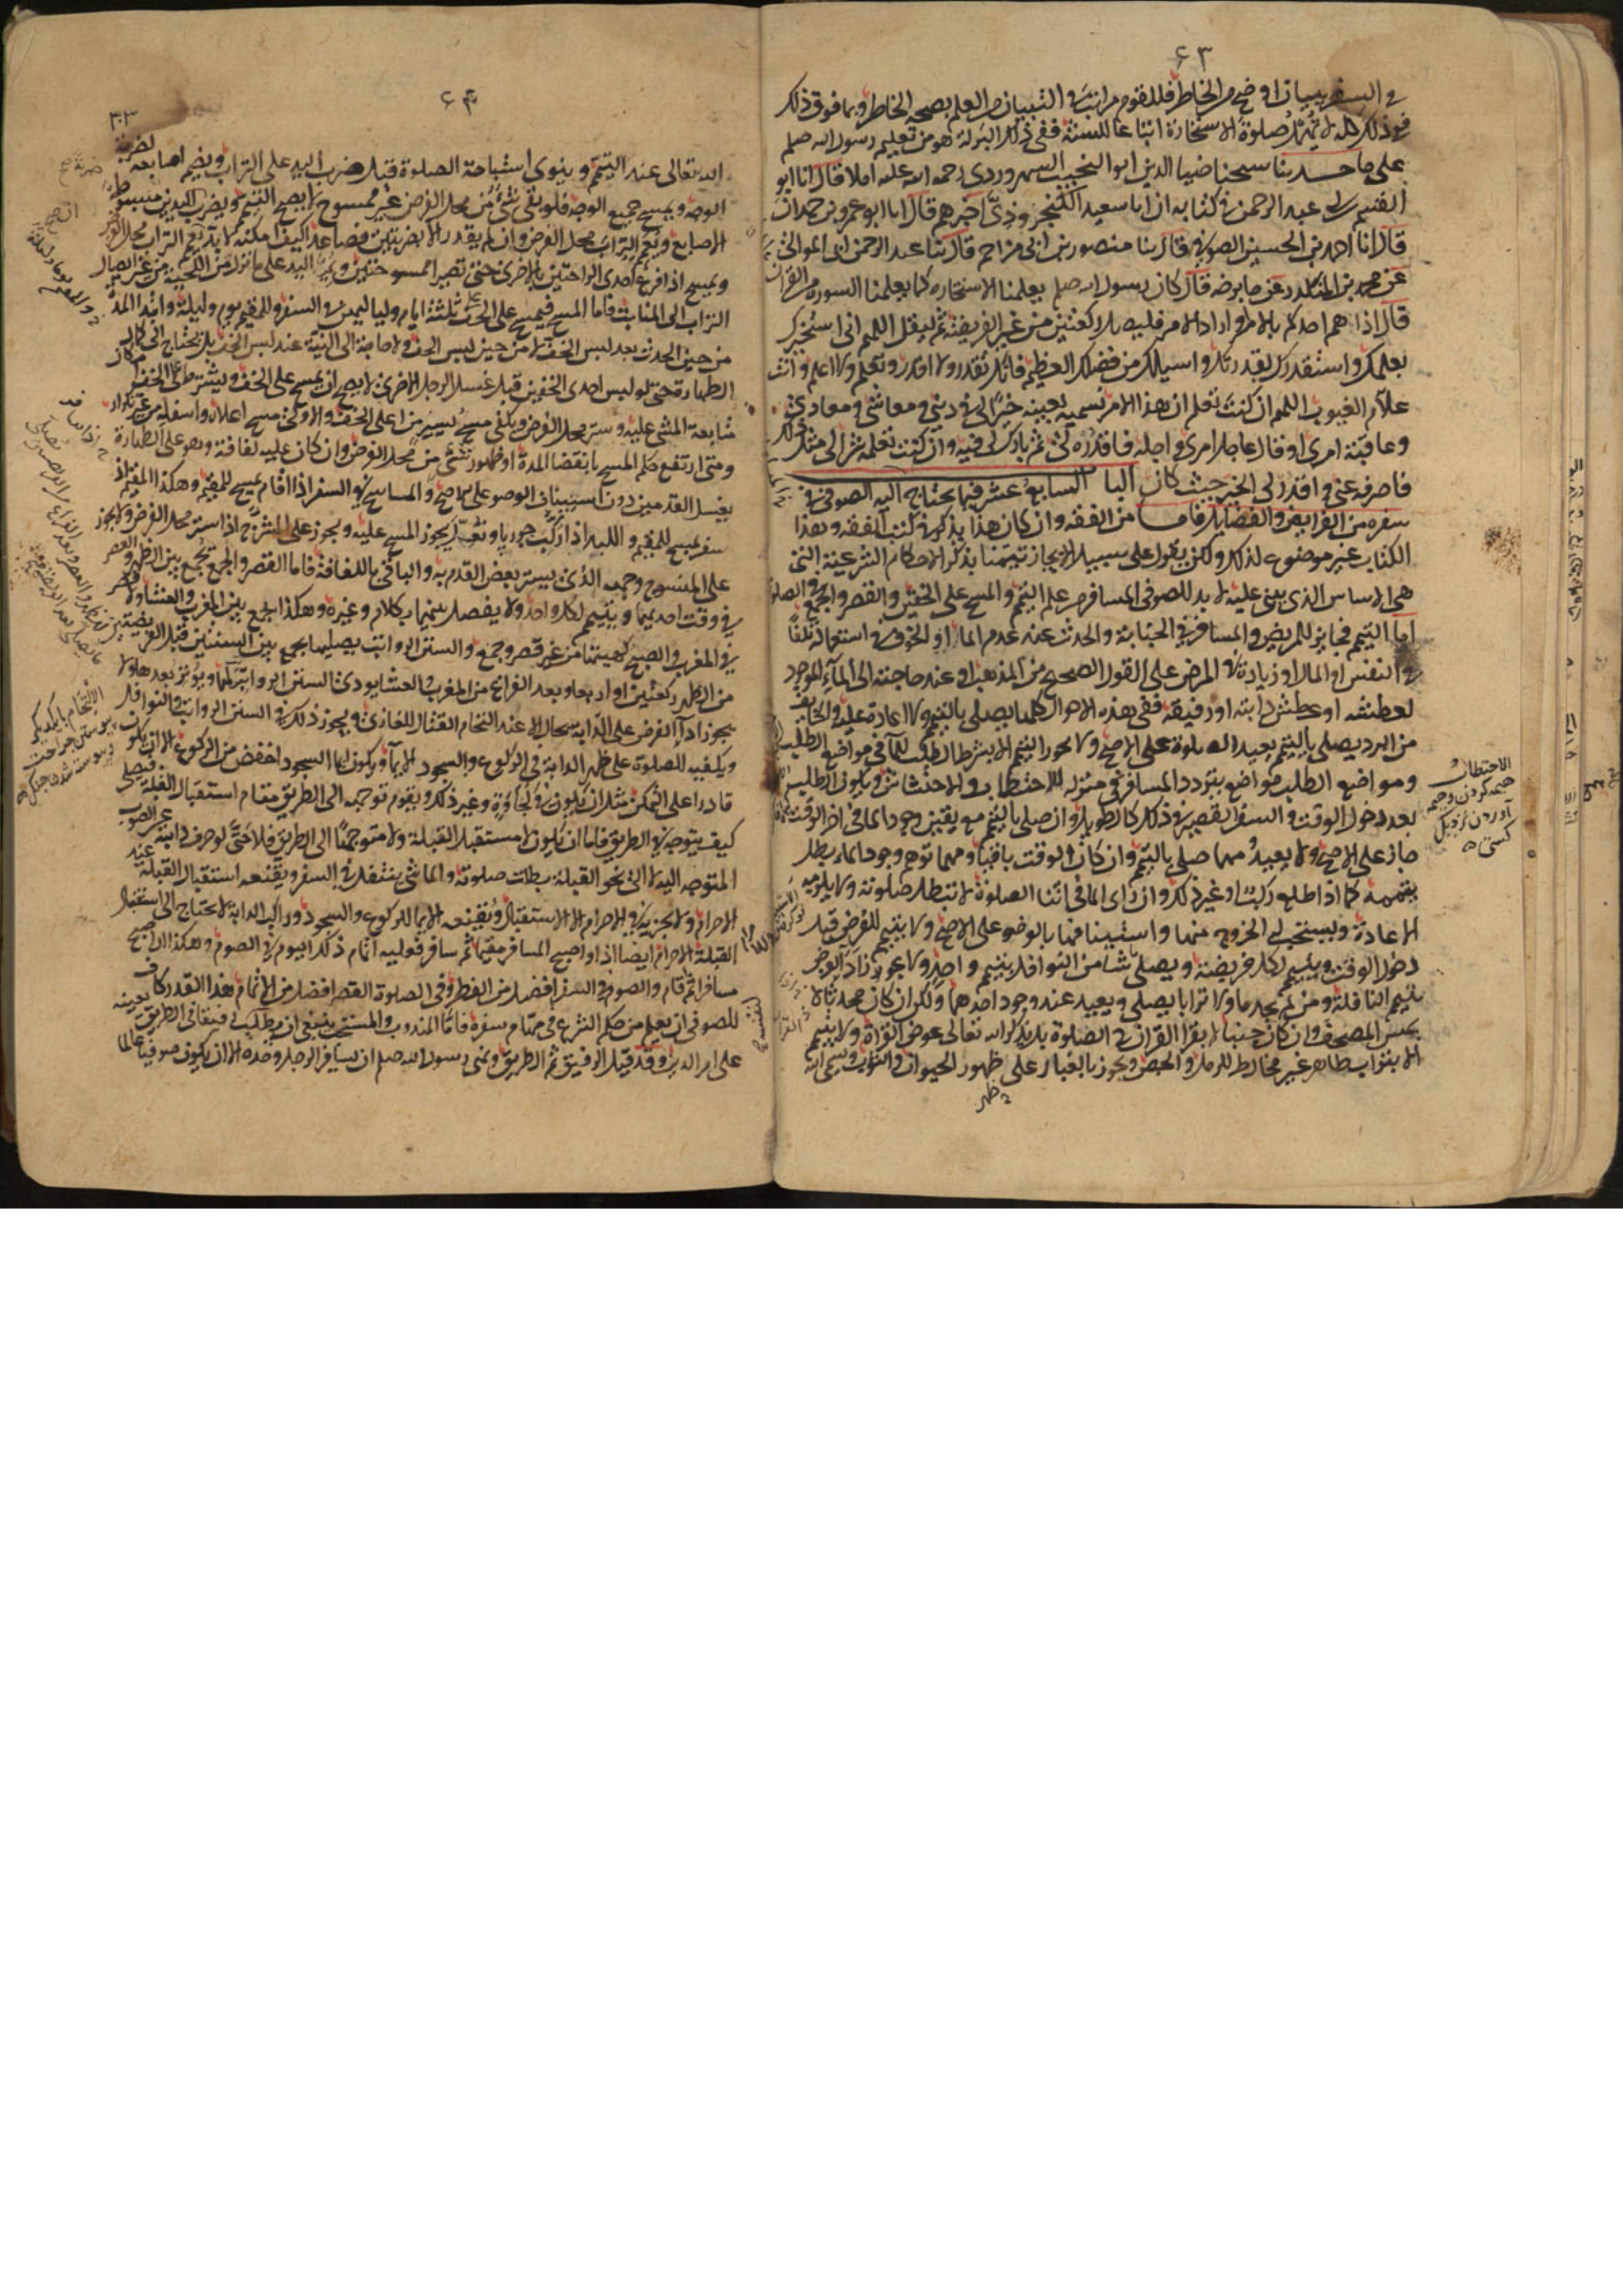 ٤٣
في السفر ببيان اوضح من الخاطر فللقوم مراتب في التبيان من العلم بصحة الخاطر وبما فوق ذلك
ففي ذلك كله لا يهمل صلوة الاستخارة اتباعا للسنة ففي ذلك البركة هو من تعليم رسول الله صلعم
على ما حدثنا شيخنا ضيا الدين ابو النجيب السهروردي رحمه الله عليه املا قال انا ابو
القسم بن عبد الرحمن في كتابه ان ابا سعيد الكنجروذي اخبرهم قال انا ابو عمرو بن حمدان
قال انا احمد بن الحسين الصوفي قال ثنا منصور بن ابي مزاحم قال ثنا عبد الرحمن ابن ابي الموالي
عن محمد بن المنكدر عن جابر رضه قال كان رسول الله صلعم يعلمنا الاستخارة كما يعلمنا السورة من القران
قال اذا هم احدكم بالامر او اراد الامر فليصل ركعتين من غير الفريضة ثم ليقل اللهم اني استخيرك
بعلمك واستقدرك بقدرتك واسيلك من فضلك العظيم فانك تقدر ولا اقدر وتعلم ولا اعلم وانت
علام الغيوب اللهم ان كنت تعلم ان هذا الامر تسميه بعينه خيرا لي في ديني ومعاشي ومعادي
وعاقبة امري او قال عاجل امري واجله فاقدره لي ثم بارك لي فيه وان كنت تعلمه شرا لي مثل ذلك
فاصرفه عني واقدر لي الخير حيث كان الباب السابع عشر فيما يحتاج اليه الصوفي في
سفره من الفرايض والفضايل فاما من الفقه وان كان هذا يذكر في كتب الفقه وهذا
الكتاب غير موضوع لذلك ولكن نقول على سبيل الايجاز تيمنا بذكر الاحكام الشرعية التي
هي الاساس الذي يبنى عليه لا بد للصوفي المسافر من علم التيمم والمسح على الخفين والقصر والجمع في الصلو
اما التيمم فجايز للمريض والمسافر في الجنابة والحدث عند عدم الما او الخوف من استعماله تلفا
في النفس او المال او زيادة في المرض على القول الصحيح من المذهب او عند حاجته الى المآء الموجود
لعطشه او عطش دابته او رفيقه ففي هذه الاحوال كلها يصلي بالتيمم ولا اعادة عليه والخايف
من البرد يصلي بالتيمم ويعيد الصلوة على الاصح ولا يجوز التيمم الا بشرط الطلب للمآ في مواضع الطلب
ومواضع الطلب مواضع يتردد المسافر في منزله للاحتطاب والاحتشاش ويكون الطلب
بعد دخول الوقت والسفر القصير في ذلك كالطويل وان صلى بالتيمم مع يقين وجود الما في اخر الوقت
جاز على الاصح ولا يعيد مهما صلى بالتيمم وان كان الوقت باقيا ومهما توهم وجود الماء بطل
تيممه كما اذا طلع ركب او غير ذلك وان راى الما في اثنا الصلوة لا تبطل صلوته ولا يلزمه
الاعادة ويستحب له الخروج منها واستينافها بالوضوء على الاصح ولا يتيمم للفرض قبل
دخول الوقت ويتيمم لكل فريضة ويصلي ما شا من النوافل بتيمم واحد ولا يجوز اداء الفرض
بتيمم النافلة ومن لم يجد ماء ولا ترابا يصلي ويعيد عند وجود احدهما ولكن ان كان محدثا لا
يمس المصحف وان كان جنبا لا يقرا القران في الصلوة بل يذكر الله تعالى عوض القراة ولا يتيمم
الا بتراب طاهر غير مخالط للرمل والجص ويجوز بالغبار على ظهور الحيوان والثوب ويسمي الله
الاحتطاب
هيمه كردن وهيمه
آوردن
٤٤
٣٠٣
الله تعالى عند التيمم وينوي استباحة الصلوة قبل ضرب اليد على التراب ويضم اصابعه لضربة
الوجه ويمسح جميع الوجه فلو بقي شيء من محل الفرض غير ممسوح لا يصح التيمم ويضرب لليدين مبسوط
الاصابع ويعم بالتراب محل الفرض وان لم يقدر الا بضربتين فصاعدا كيف امكنه لا بد ان يعم التراب محل الفرض
ويمسح اذا فرغ احدى الراحتين بالاخرى حتى تصير ممسوحتين ويمر اليد على ما نزل من اللحية من غير ايصال
التراب الى المنابت فاما المسح فيمسح على الخف ثلثة ايام ولياليهن في السفر والمقيم يوم وليلة وابتدا المدة
من حين الحدث بعد لبس الخف لا من حين لبس الخف ولا حاجة الى النية عند لبس الخف بل يحتاج الى كمال
الطهارة حتى لو لبس احدى الخفين قبل غسل الرجل الاخرى لا يصح ان يمسح على الخف ويشترط في الخف امكان
متابعة المشي عليه وستر محل الفرض ويكفي مسح يسير من اعلى الخف والاولى مسح اعلاه واسفله من غير تكرار
ومتى ارتفع حكم المسح بانقضا المدة او ظهور شيء من محل الفرض وان كان عليه لفافة وهو على الطهارة
يغسل القدمين دون استيناف الوضوء على الاصح والماسح في السفر اذا اقام يمسح للمقيم وهكذا المقيم اذا
سفر يمسح للمقيم واللبد اذا ركب جوربا ونعل يجوز المسح عليه ويجوز على المشرج اذا ستر محل الفرض ولا يجوز
على المنسوج وجهه الذي يستر بعض القدم به والباقي باللفافة فاما القصر والجمع فيجمع بين الظهر والعصر
في وقت احديهما ويتيمم لكل واحد ولا يفصل بينهما بكلام وغيره وهكذا الجمع بين المغرب والعشا ولا قصر
في المغرب والصبح كهيئتها من غير قصر وجمع والسنن الرواتب يصليها بجمع بين السنتين قبل الفريضتين
من الظهر ركعتين او اربعا وبعد الفراغ من المغرب والعشا يودي السنن الرواتب لكل ويوتر بعدها ولا
يجوز ادآ الفرض على الدابة بحال الا عند التحام القتال للغازي ويجوز ذلك في السنن الرواتب والنوافل
ويكفيه للصلوة على ظهر الدابة في الركوع والسجود الايمآ ويكون ايما السجود اخفض من الركوع الا ان يكون
قادرا على التمكن مثل ان يكون في محاوة وغير ذلك ويقوم توجهه الى الطريق مقام استقبال القبلة فيصلي
كيف يتوجه في الطريق فاما ان يكون لا مستقبل القبلة ولا متوجها الى الطريق فلا حتى لو حرف دابته عن الصوب
المتوجه اليه لا الى نحو القبلة بطلت صلوته والماشي يتنفل في السفر ويقنعه استقبال القبلة عند
الاحرام ولا يجزيه في الاحرام الا الاستقبال ويقنعه الايما للركوع والسجود وراكب الدابة لا يحتاج الى استقبال
القبلة للاحرام ايضا اذا اصبح المسافر مقيما ثم سافر فعليه اتمام ذلك اليوم في الصوم وهكذا ان اصبح
مسافرا ثم اقام والصوم في السفر افضل من الفطر وفي الصلوة القصر افضل من الاتمام فهذا القدر كاف
للصوفي ان يعلم من حكم الشرع في مهام سفره فاما المندوب والمستحب ينبغي ان يطلب رفيقا في الطريق يعينه
على امر الدين وقد قيل الرفيق ثم الطريق ونهى رسول الله صلعم ان يسافر الرجل وحده الا ان يكون صوفيا عالما